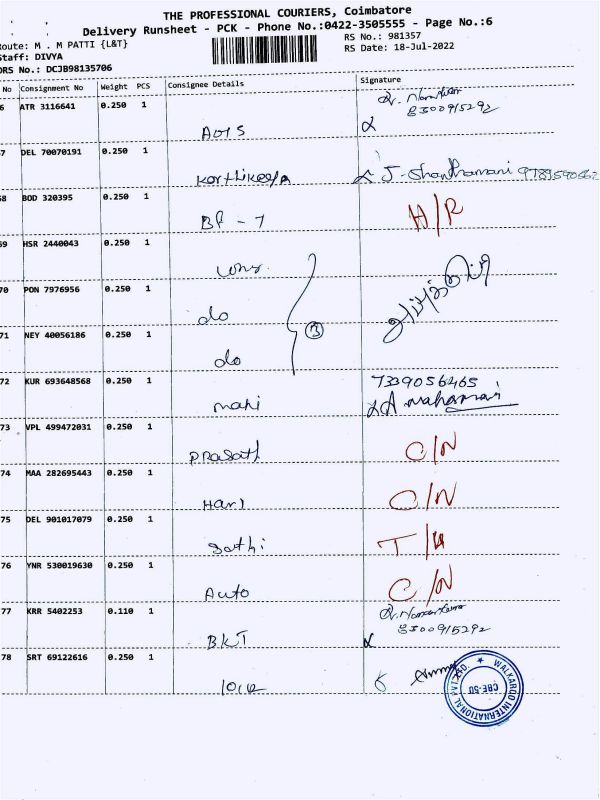 THE PROFESSIONAL COURIERS, Coimbatore
Delivery Runsheet - PCK - Phone No.:0422-3505555 - Page No.:6
Route: M . M PATTI {L&T}
RS No.: 981357
Staff: DIVYA
RS Date: 18-Jul-2022
DRS No.: DCJB98135706
No Consignment No Weight PCS Consignee Details Signature
6 ATR 3116641 0.250 1
8300915292
67 DEL 70070191 0.250 1
Karthikeya J. Shanthamani
68 BOD 320395 0.250 1
H/R
69 HSR 2440043 0.250 1
70 PON 7976956 0.250 1
do
71 NEY 40056186 0.250 1
3
do
72 KUR 693648568 0.250 1
7339056465
mani
73 VPL 499472031 0.250 1
Prasath C/N
74 MAA 282695443 0.250 1
Hari C/N
75 DEL 901017079 0.250 1
Sathi
76 YNR 530019630 0.250 1
Auto C/N
77 KRR 5402253 0.110 1
8300915292
BKT
78 SRT 69122616 0.250 1
WALKAROO INTERNATIONAL PVT. LTD.
CBE-50